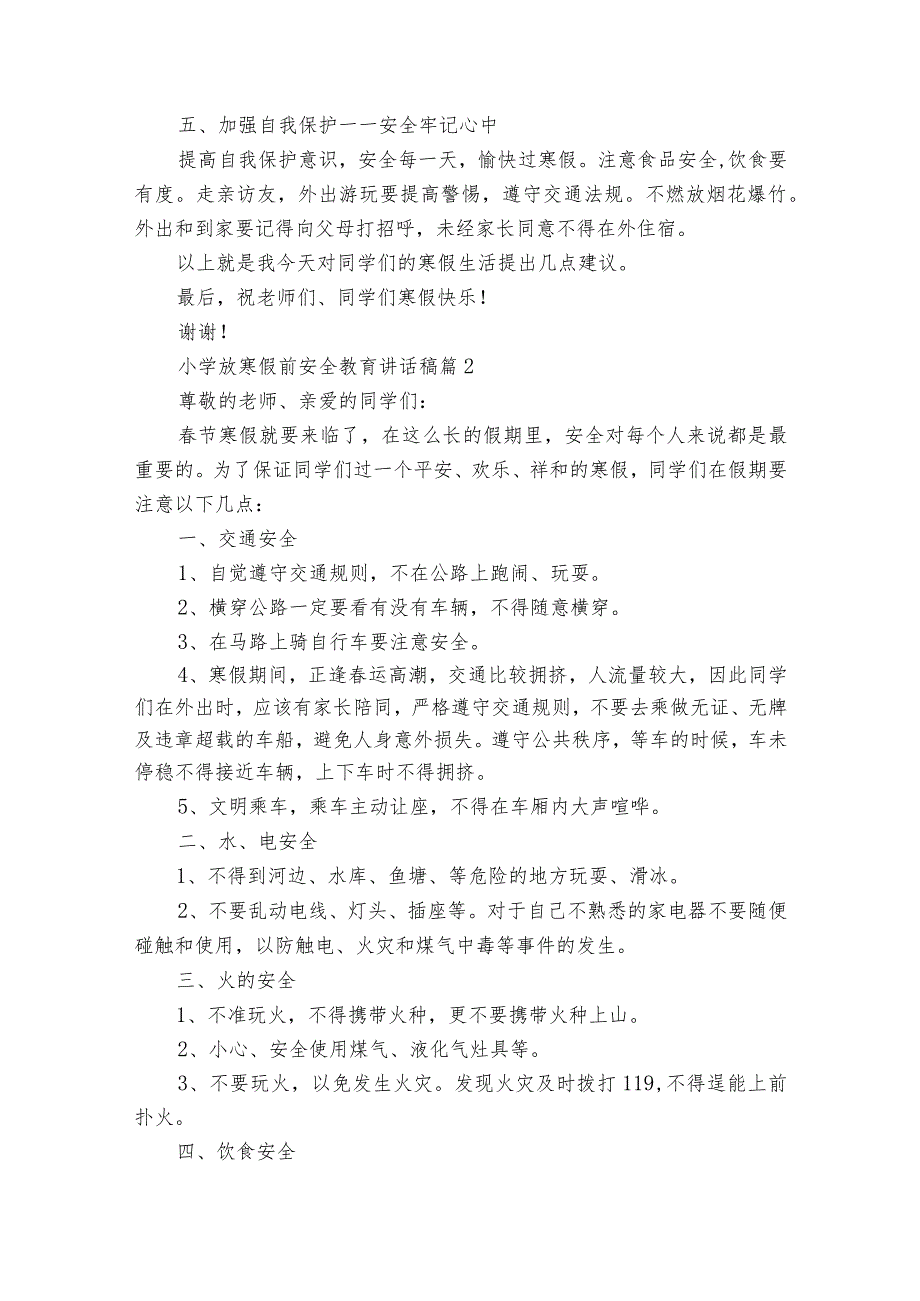 五、加强自我保护一一安全牢记心中
提高自我保护意识，安全每一天，愉快过寒假。注意食品安全,饮食要
有度。走亲访友，外出游玩要提高警惕，遵守交通法规。不燃放烟花爆竹。
外出和到家要记得向父母打招呼，未经家长同意不得在外住宿。
以上就是我今天对同学们的寒假生活提出几点建议。
最后，祝老师们、同学们寒假快乐！
谢谢！
小学放寒假前安全教育讲话稿篇2
尊敬的老师、亲爱的同学们：
春节寒假就要来临了，在这么长的假期里，安全对每个人来说都是最
重要的。为了保证同学们过一个平安、欢乐、祥和的寒假，同学们在假期要
注意以下几点：
一、交通安全
1、自觉遵守交通规则，不在公路上跑闹、玩耍。
2、横穿公路一定要看有没有车辆，不得随意横穿。
3、在马路上骑自行车要注意安全。
4、寒假期间，正逢春运高潮，交通比较拥挤，人流量较大，因此同学
们在外出时，应该有家长陪同，严格遵守交通规则，不要去乘做无证、无牌
及违章超载的车船，避免人身意外损失。遵守公共秩序，等车的时候，车未
停稳不得接近车辆，上下车时不得拥挤。
5、文明乘车，乘车主动让座，不得在车厢内大声喧哗。
二、水、电安全
1、不得到河边、水库、鱼塘、等危险的地方玩耍、滑冰。
2、不要乱动电线、灯头、插座等。对于自己不熟悉的家电器不要随便
碰触和使用，以防触电、火灾和煤气中毒等事件的发生。
三、火的安全
1、不准玩火，不得携带火种，更不要携带火种上山。
2、小心、安全使用煤气、液化气灶具等。
3、不要玩火，以免发生火灾。发现火灾及时拨打119,不得逞能上前
扑火。
四、饮食安全